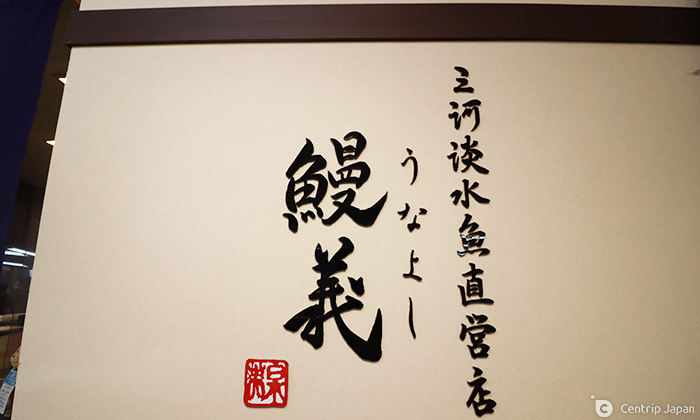 三河淡水魚直営店
うなよし
鰻義
Centrip Japan